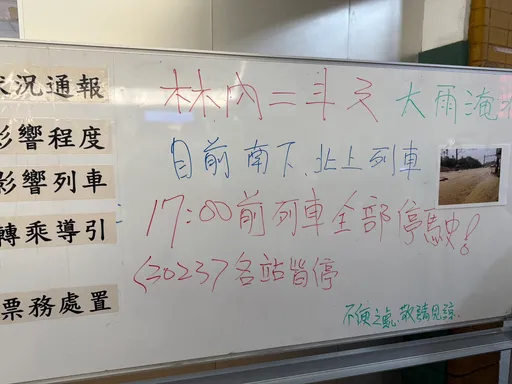 狀況通報
林內二斗六 大雨淹水
影響程度
目前南下、北上列車
影響列車
17:00前列車全部停駛!
轉乘導引
(3023次各站皆停
票務處置
不便之處.敬請見諒.